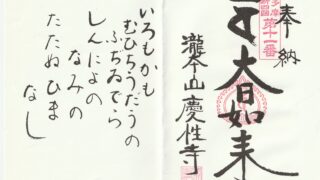 奉納
第十一番
大日如来
瀧本山慶性寺
いろもかも
むひちうだうの
ふぢゐでら
しんによの
なみの
たたぬひま
なし